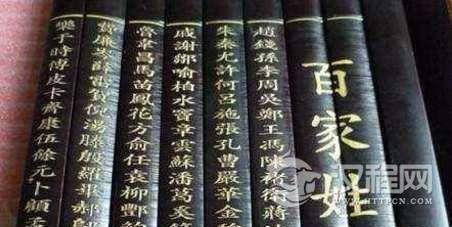 百家姓
趙錢孫李周吳鄭王馮陳褚衛蔣
朱秦尤許何呂施張孔曹嚴華金
戚謝鄒喻柏水竇章雲蘇潘葛奚
魯韋昌馬苗鳳花方俞任袁柳酆
費廉岑薛雷賀倪湯滕殷羅畢郝
樂于時傅皮卡齊康伍餘元卜顧孟
汉程网
HTTPCN.COM